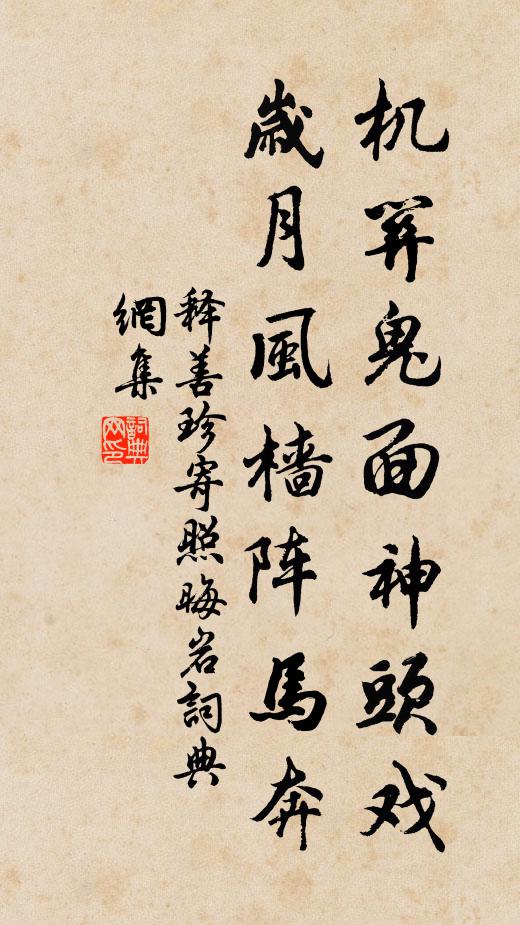 机筭鬼面神頭戏
歲月風檣阵馬奔
释善珍寄照晦岩詞典
網集
詞典
网印